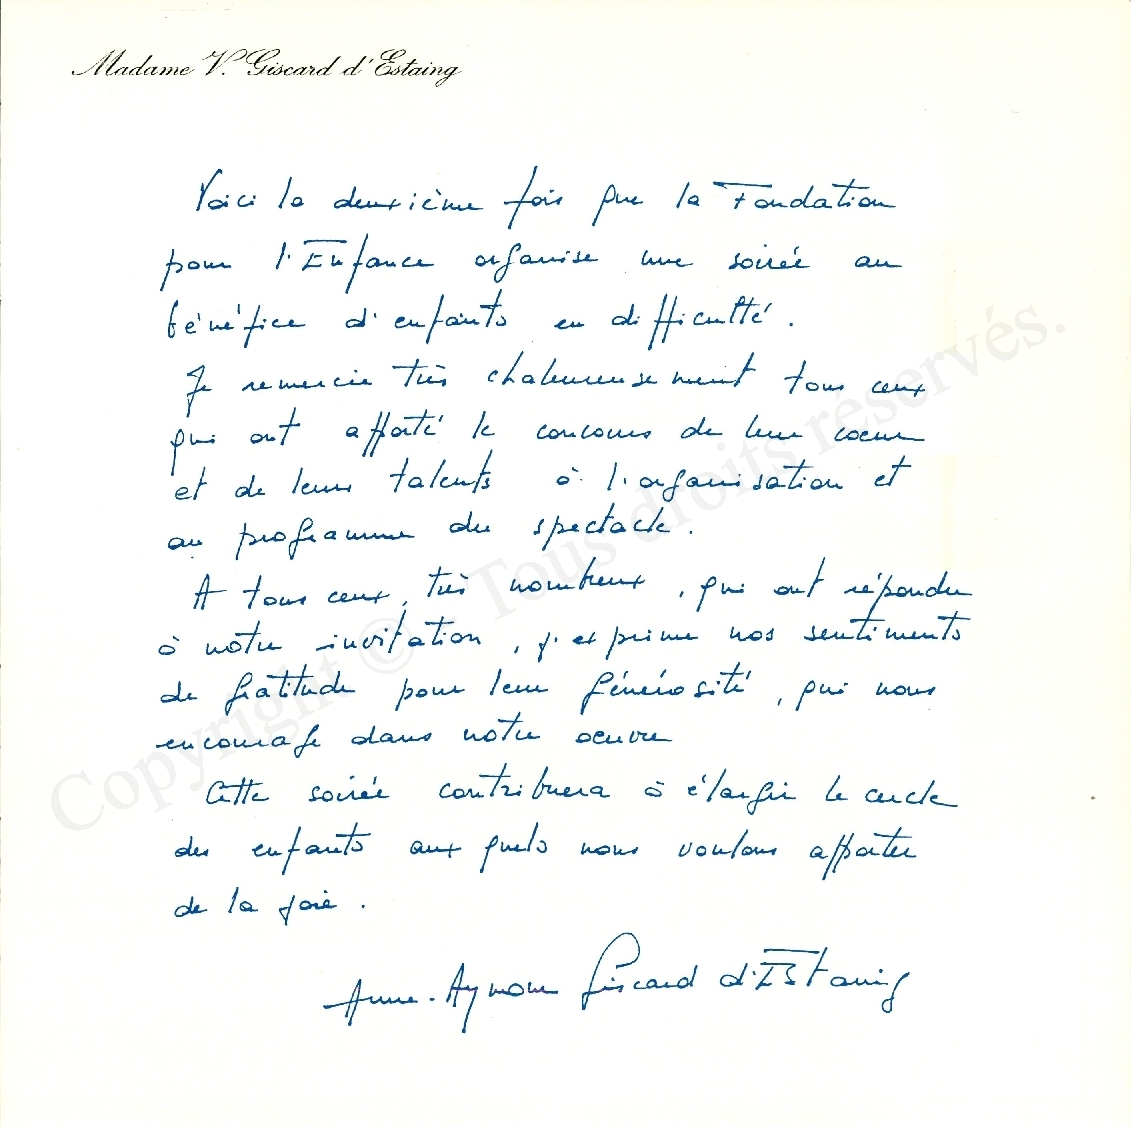 Madame V. Giscard d'Estaing
Voici la deuxième fois que la Fondation
pour l'Enfance organise une soirée au
bénéfice d'enfants en difficulté.
Je remercie très chaleureusement tous ceux
qui ont apporté le concours de leur coeur
et de leurs talents à l'organisation et
au programme du spectacle.
A tous ceux, très nombreux, qui ont répondu
à notre invitation, j'exprime nos sentiments
de gratitude pour leur générosité, qui nous
encourage dans notre oeuvre
Cette soirée contribuera à élargir le cercle
des enfants auxquels nous voulons apporter
de la joie.
Anne-Aymone Giscard d'Estaing
Copyright © - Tous droits réservés.